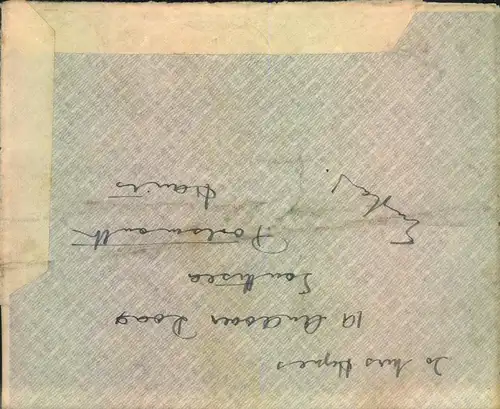 To Mrs Hynes
19 Andover Road
Southsea
Portsmouth
Hants
England